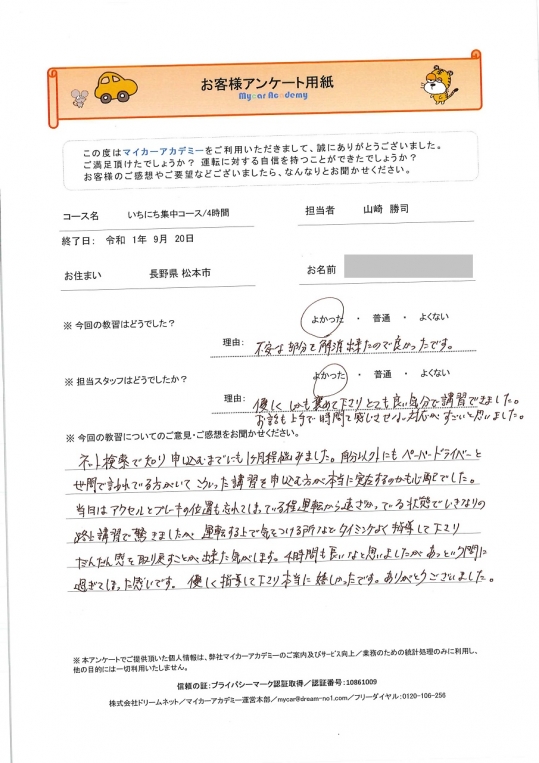 お客様アンケート用紙
Mycar Academy
この度はマイカーアカデミーをご利用いただきまして、誠にありがとうございました。
ご満足頂けたでしょうか？ 運転に対する自信を持つことができたでしょうか？
お客様のご感想やご要望などございましたら、なんなりとお聞かせください。
コース名 いちにち集中コース/4時間 担当者 山崎 勝司
終了日： 令和 1年 9月 20日
お住まい 長野県 松本市 お名前
※ 今回の教習はどうでした？ よかった ・ 普通 ・ よくない
理由： 不安な部分を解消出来たので良かったです。
※ 担当スタッフはどうでしたか？ よかった ・ 普通 ・ よくない
理由： 優しくしかも褒めて下さりとても良い気分で講習できました。
お話も上手で時間を感じさせない対応がすごいと思いました。
※ 今回の教習についてのご意見・ご感想をお聞かせください。
ネット検索で知り申込むまでにも1ヶ月程悩みました。自分以外にもペーパードライバーと
世間で言われている方がいてこういった講習を申込む方が本当に実在するのかも心配でした。
当日はアクセルとブレーキの位置も忘れてしまっている程運転から遠ざかっている状態でいきなりの
路上講習で驚きましたが、運転する上で気をつける所などタイミングよく指導して下さり
だんだん感を取り戻すことが出来た気がします。4時間も長いなと思いましたがあっという間に
過ぎてしまった感じです。優しく指導して下さり本当に嬉しかったです。ありがとうございました。
※ 本アンケートでご提供頂いた個人情報は、弊社マイカーアカデミーのご案内及びサービス向上／業務のための統計処理のみに利用し、
他の目的には一切利用いたしません。
信頼の証：プライバシーマーク認証取得／認証番号：10861009
株式会社ドリームネット／マイカーアカデミー運営本部／mycar@dream-no1.com／フリーダイヤル：0120-106-256